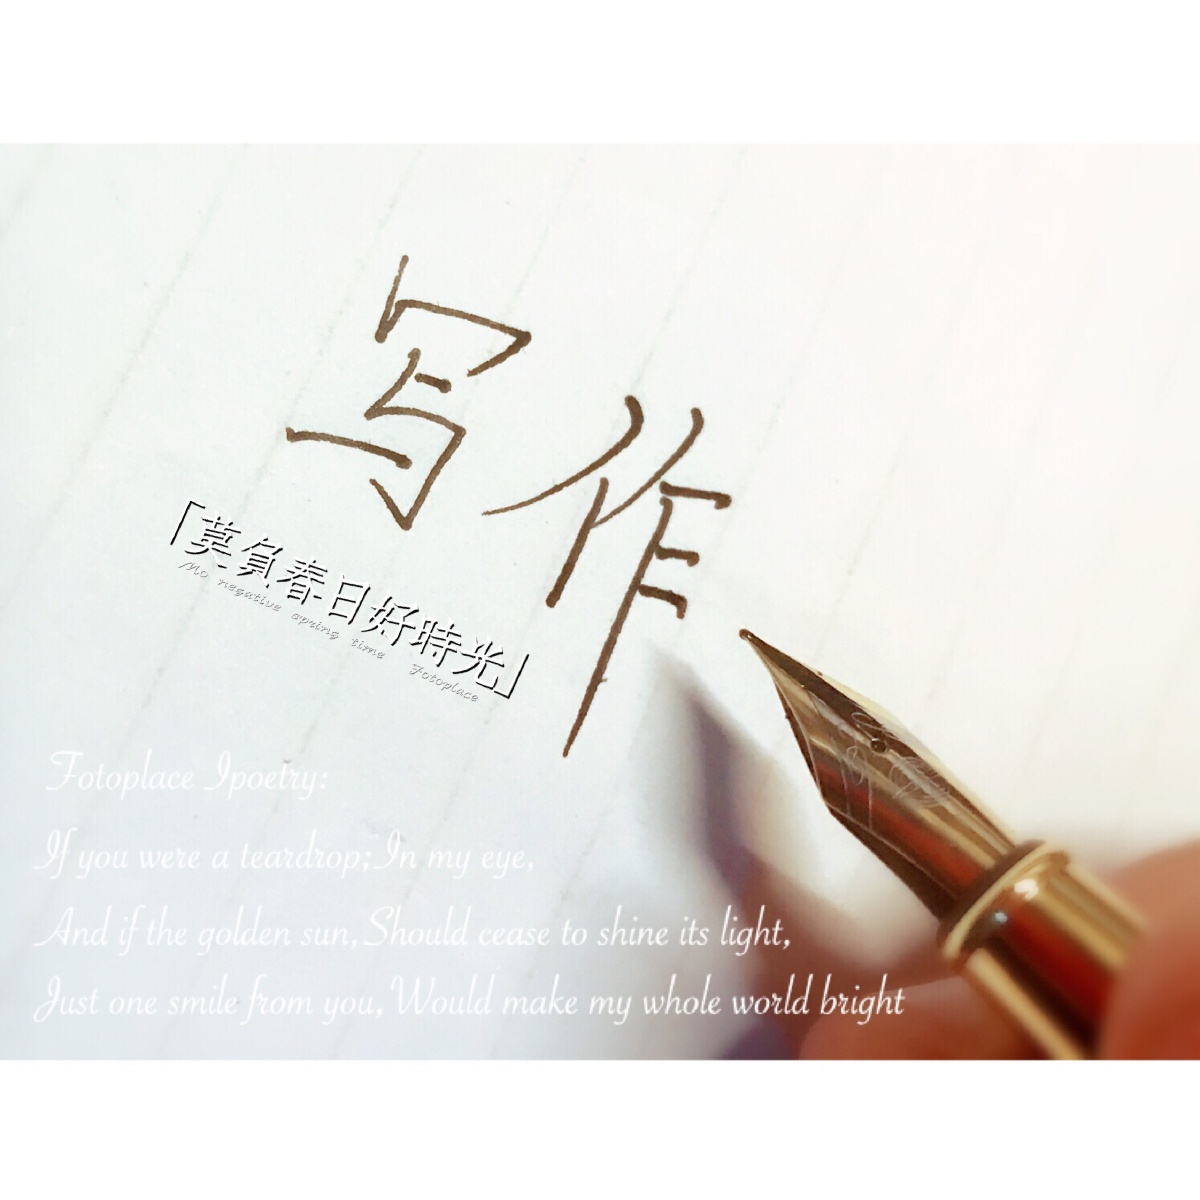 写作
「莫負春日好時光」
Mo negative spring time Fotoplace
Fotoplace Ipoetry:
If you were a teardrop;In my eye,
And if the golden sun,Should cease to shine its light,
Just one smile from you,Would make my whole world bright